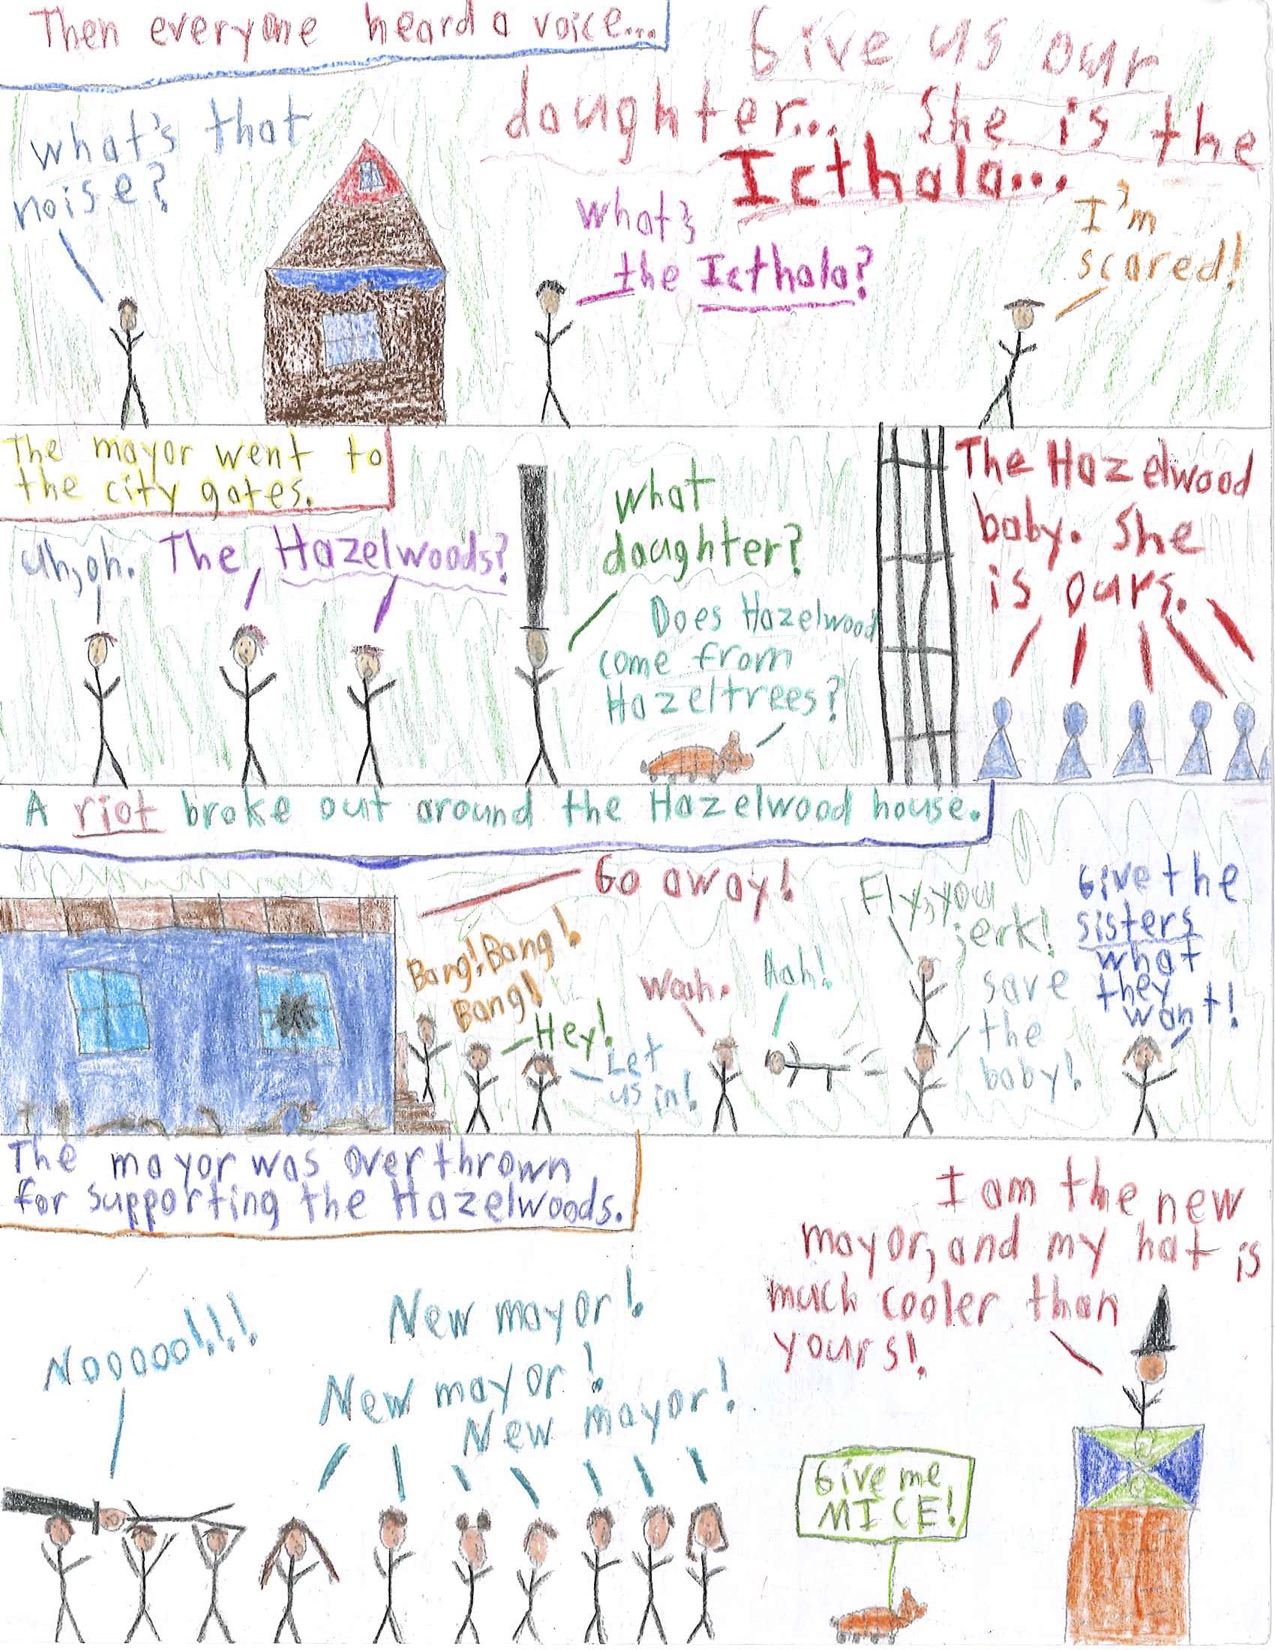 Then everyone heard a voice...
Give us our
daughter... She is the
Icthala...
What's that
noise?
What's
the Icthala?
I'm
scared!
The mayor went to
the city gates.
Uh, oh.
The Hazelwoods?
What
daughter?
Does Hazelwood
come from
Hazeltrees?
The Hazelwood
baby. She
is ours.
A riot broke out around the Hazelwood house.
Go away!
Bang! Bang!
Bang!
Hey!
Let
us in!
Wah.
Aah!
Fly, you
jerk!
Save
the
baby!
Give the
sisters
what
they
want!
The mayor was overthrown
for supporting the Hazelwoods.
Nooooo!!!!
New mayor!
New mayor!
New mayor!
Give me
MICE!
I am the new
mayor, and my hat is
much cooler than
yours!